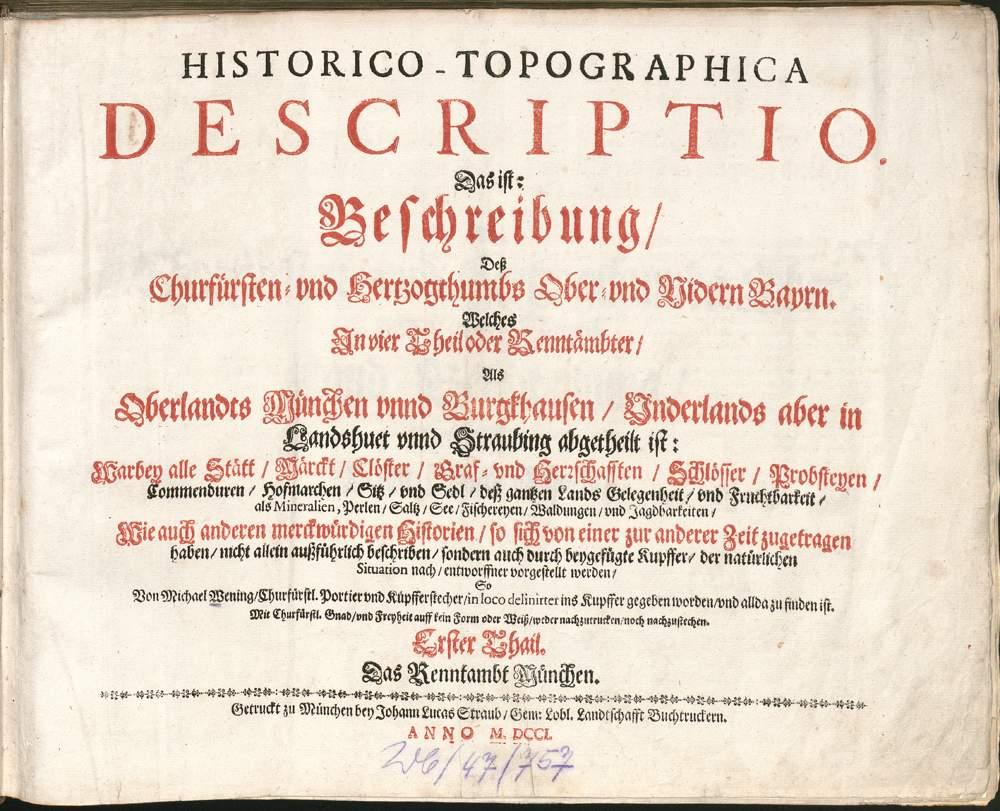 HISTORICO-TOPOGRAPHICA
DESCRIPTIO.
Das ist:
Beschreibung/
Deß
Churfürsten- vnd Hertzogthumbs Ober- vnd Nidern Bayrn.
Welches
In vier Theil oder Renntämbter/
Als
Oberlandts München vnnd Burgkhausen / Vnderlands aber in
Landshuet vnnd Straubing abgetheilt ist:
Warbey alle Stätt / Märckt / Clöster / Graf- vnd Herrschafften / Schlösser / Probsteyen /
Commenduren / Hofmarchen / Sitz / vnd Sedl / deß gantzen Lands Gelegenheit / vnd Fruchtbarkeit /
als Mineralien, Perlen / Saltz / See / Fischereyen / Waldungen / vnd Jagdbarkeiten /
Wie auch anderen merckwürdigen Historien / so sich von einer zur anderer Zeit zugetragen
haben / nicht allein außführlich beschriben / sondern auch durch beygefügte Kupffer / der natürlichen
Situation nach / entworffner vorgestellt werden /
So
Von Michael Wening / Churfürstl. Portier vnd Kupfferstecher / in loco delinirter ins Kupffer gegeben worden / vnd allda zu finden ist.
Mit Churfürstl. Gnad / vnd Freyheit auff kein Form oder Weiß / weder nachzutrucken / noch nachzustechen.
Erster Thail.
Das Renntambt München.
Getruckt zu München bey Johann Lucas Straub / Gem: Lobl. Landtschafft Buchtruckern.
ANNO M. DCCI.
Wb/47/757